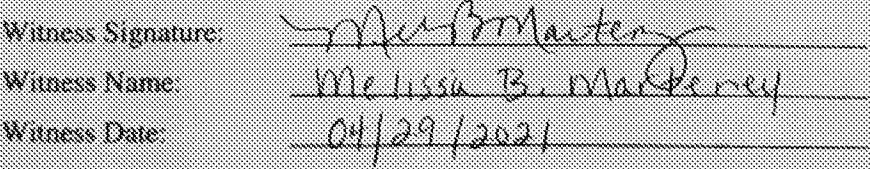 Witness Signature: Mel B Marteney
Witness Name: Melissa B. Marteney
Witness Date: 04/29/2021